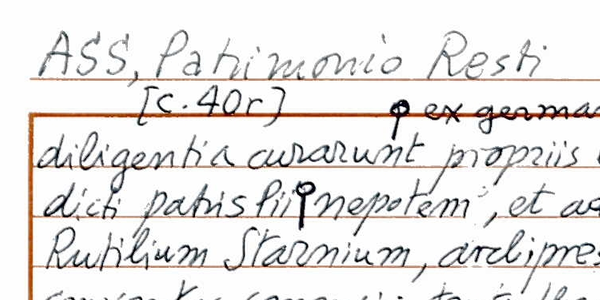 ASS, Patrimonio Resti
[c. 40r]
φ ex germa
diligentia curarunt propriis
dicti patris Pii φ nepotem, et
Rutilium Starnium, archipres